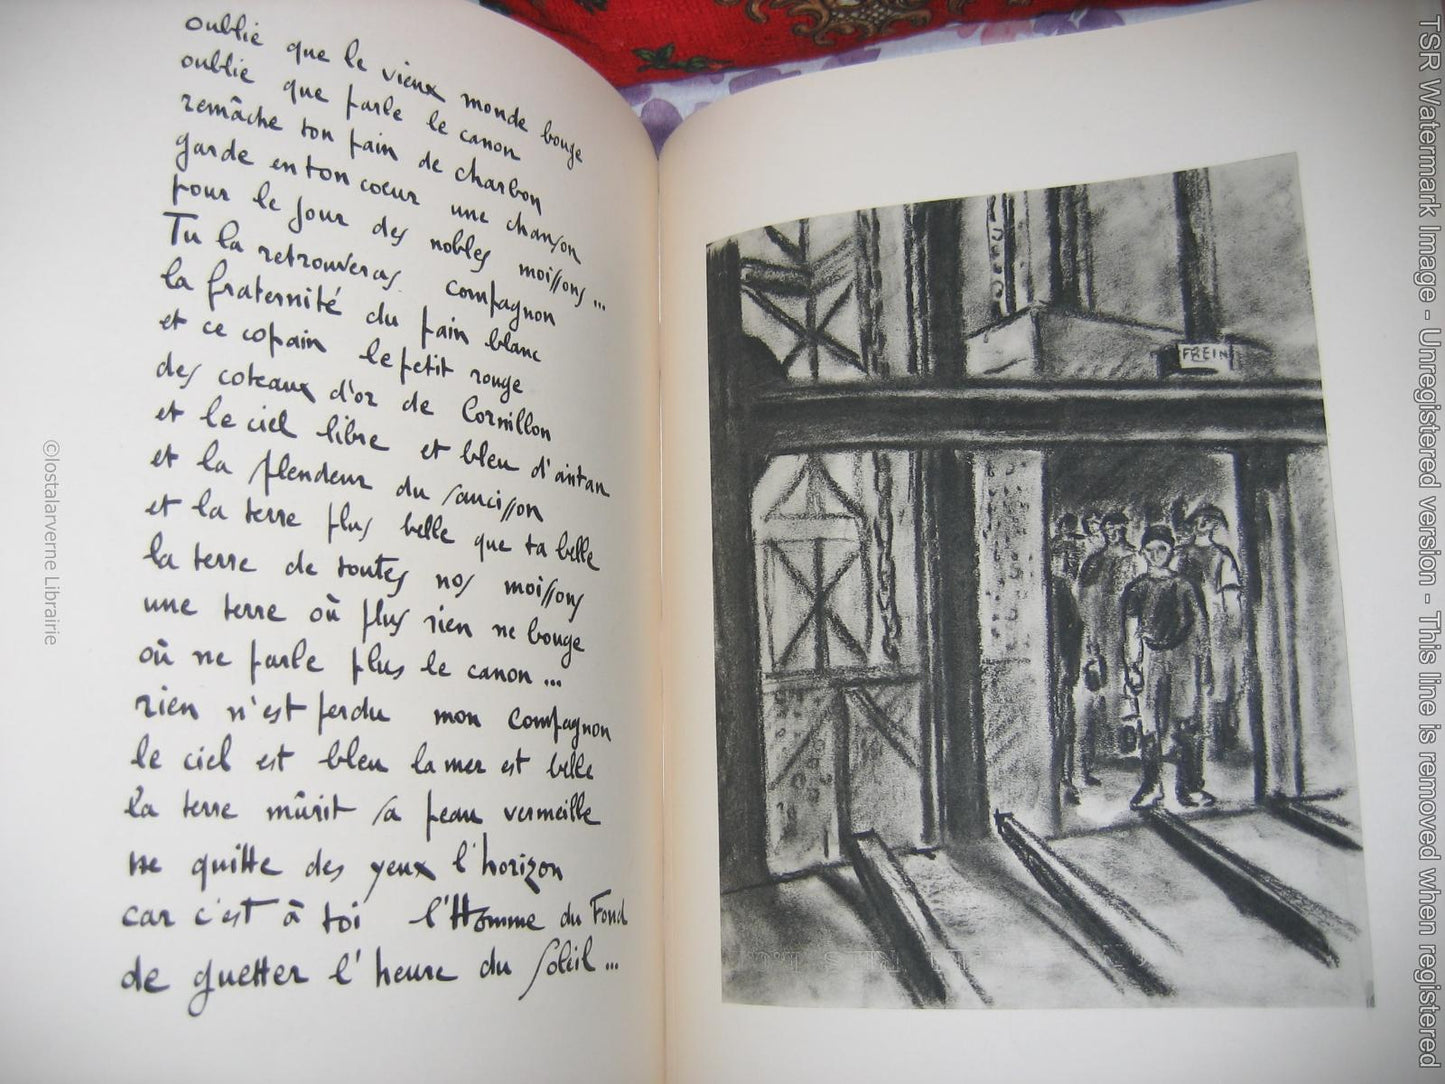 oublie que le vieux monde bouge
oublie que parle le canon
remâche ton pain de charbon
garde en ton coeur une chanson
pour le jour des nobles moissons...
Tu la retrouveras compagnon
la fraternité du pain blanc
et ce copain le petit rouge
des coteaux d'or de Cornillon
et le ciel libre et bleu d'antan
et la splendeur du saucisson
et la terre plus belle que ta belle
la terre de toutes nos moissons
une terre où plus rien ne bouge
où ne parle plus le canon...
rien n'est perdu mon compagnon
le ciel est bleu la mer est belle
la terre mûrit sa peau vermeille
ne quitte des yeux l'horizon
car c'est à toi l'Homme du Fond
de guetter l'heure du Soleil...
FREIN
©lostalarverne Librairie
TSR Watermark Image - Unregistered version - This line is removed when registered